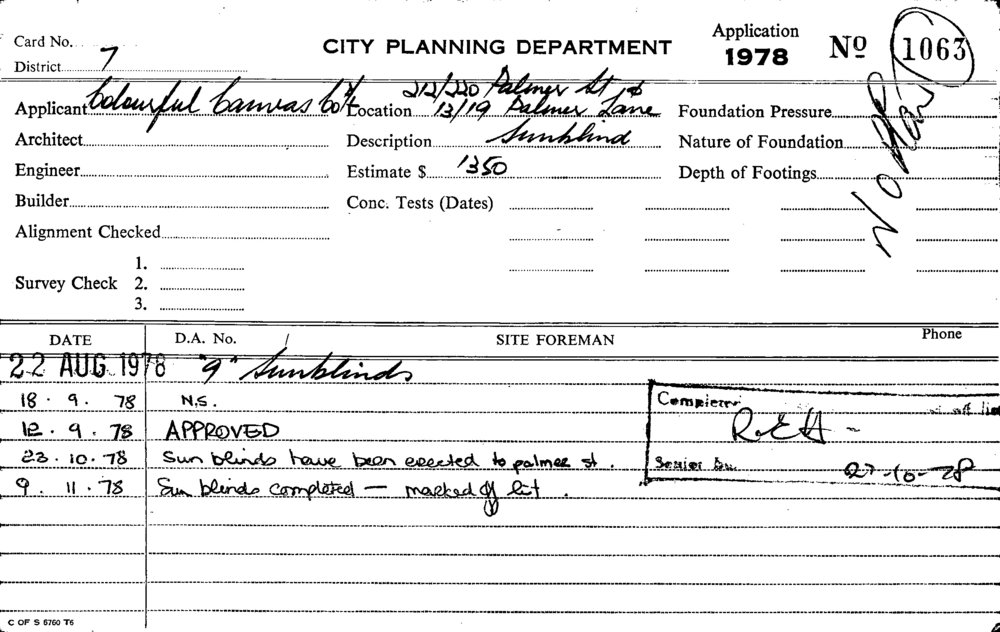 Card No.
CITY PLANNING DEPARTMENT
Application
1978
Nº 1063
District 7
Applicant Colourful Canvas Co
Location 212/220 Palmer St &
13/19 Palmer Lane
Foundation Pressure
No
Architect
Description Sunblind
Nature of Foundation
Engineer
Estimate $ 1350
Depth of Footings
Builder
Conc. Tests (Dates)
Alignment Checked
Survey Check
1.
2.
3.
DATE D.A. No. SITE FOREMAN Phone
22 AUG 1978 "9" Sunblinds
18 . 9 . 78 N.S.
12 . 9 . 78 APPROVED
23 . 10 . 78 Sun blinds have been erected to palmer st .
9 . 11 . 78 Sun blinds completed — marked off list .
R.E.H -
Senior
27-10-78
C OF S 5760 T6